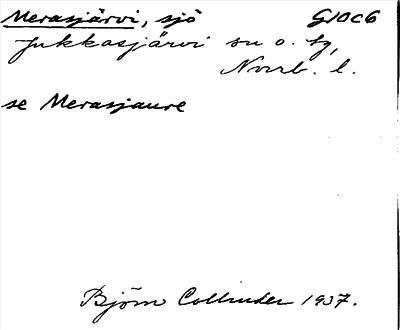 Merasjärvi, sjö G10c6
Jukkasjärvi sn o. tg,
Norrb. l.
se Merasjaure
Björn Collinder 1937.